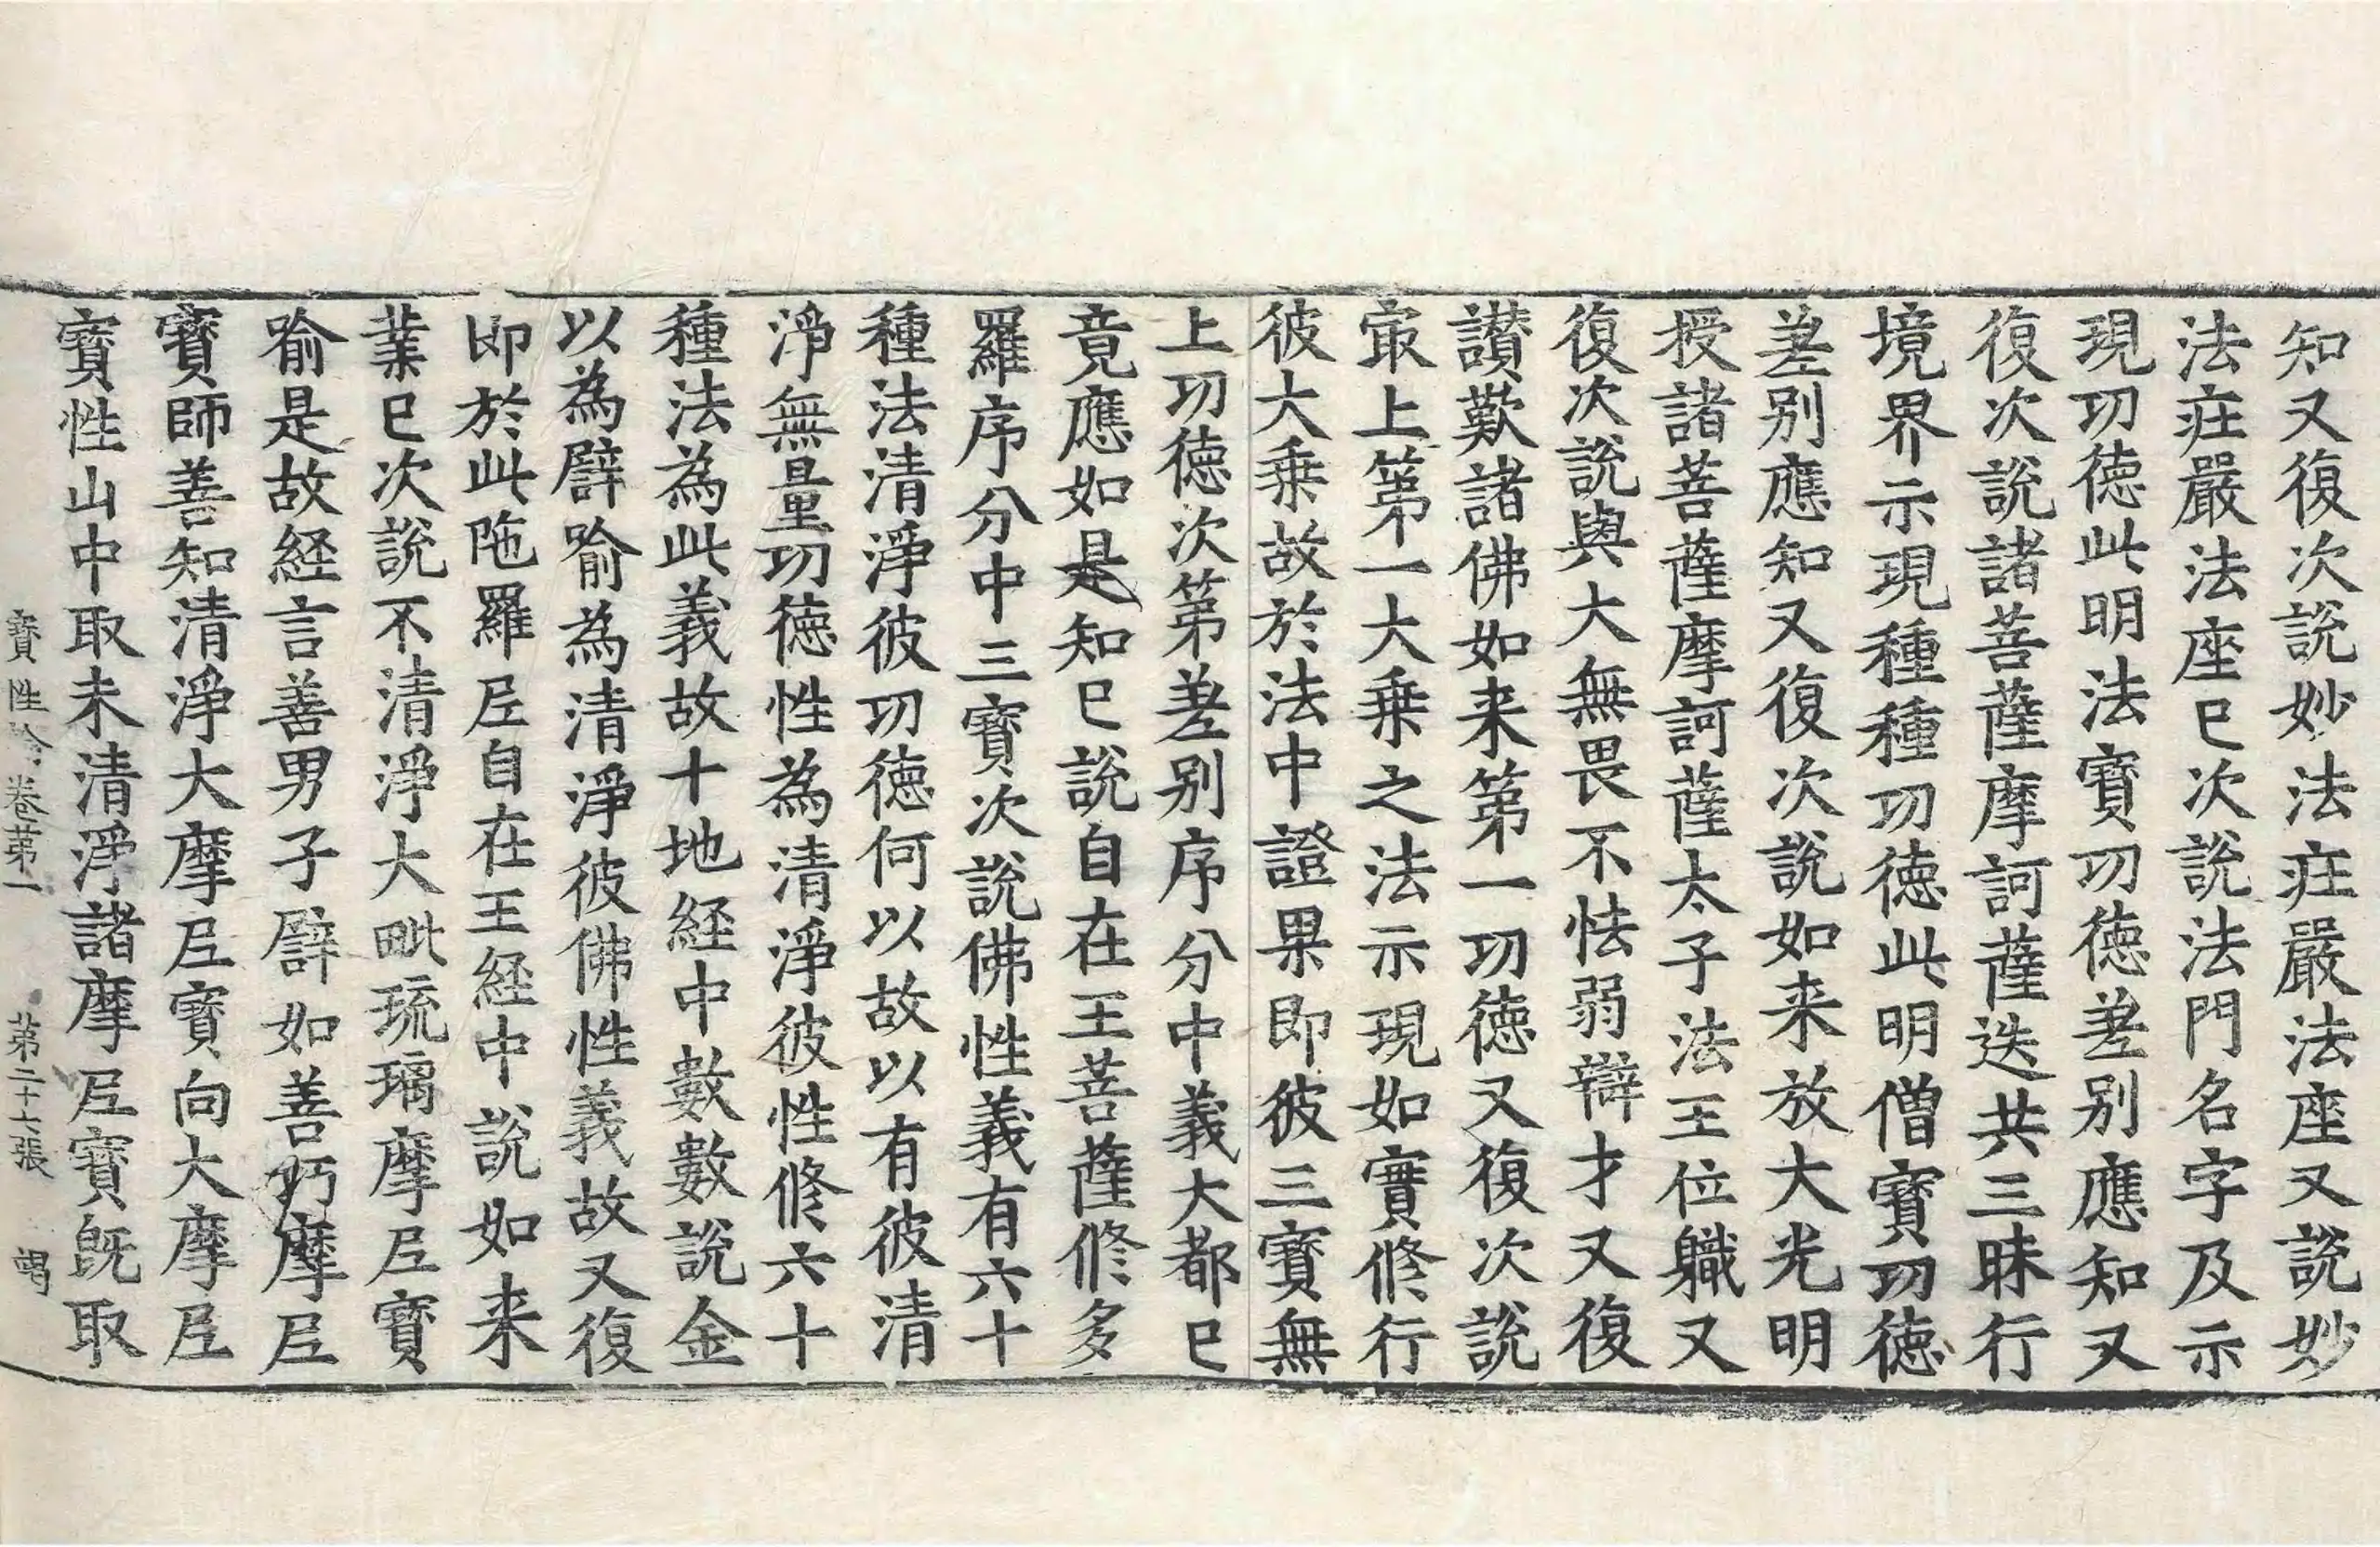 知又復次說妙法疘嚴法座又說妙
法疘嚴法座已次說法門名字及示
現功德此明法寶功德差别應知又
復次說諸菩薩摩訶薩迭共三昧行
境界示現種種功德此明僧寶功德
差别應知又復次說如来放大光明
授諸菩薩摩訶薩太子法王位軄又
復次說與大無畏不怯弱辯才又復
讃歎諸佛如来第一功德又復次說
冣上第一大乘之法示現如實修行
彼大乘故於法中證果即彼三寶無
上功德次第差别序分中義大都已
竟應如是知已說自在王菩薩修多
羅序分中三寶次說佛性義有六十
種法清淨彼功德何以故以有彼清
淨無量功德性為清淨彼性修六十
種法為此義故十地経中數數說金
以為譬喻為清淨彼佛性義故又復
即於此陁羅𡰱自在王経中說如来
業已次說不清淨大毗琉璃摩𡰱寶
喻是故経言善男子譬如善巧摩𡰱
寶師善知清淨大摩𡰱寶向大摩𡰱
寶性山中取未清淨諸摩𡰱寶旣取
寶性論卷第一 第二十七張 竭